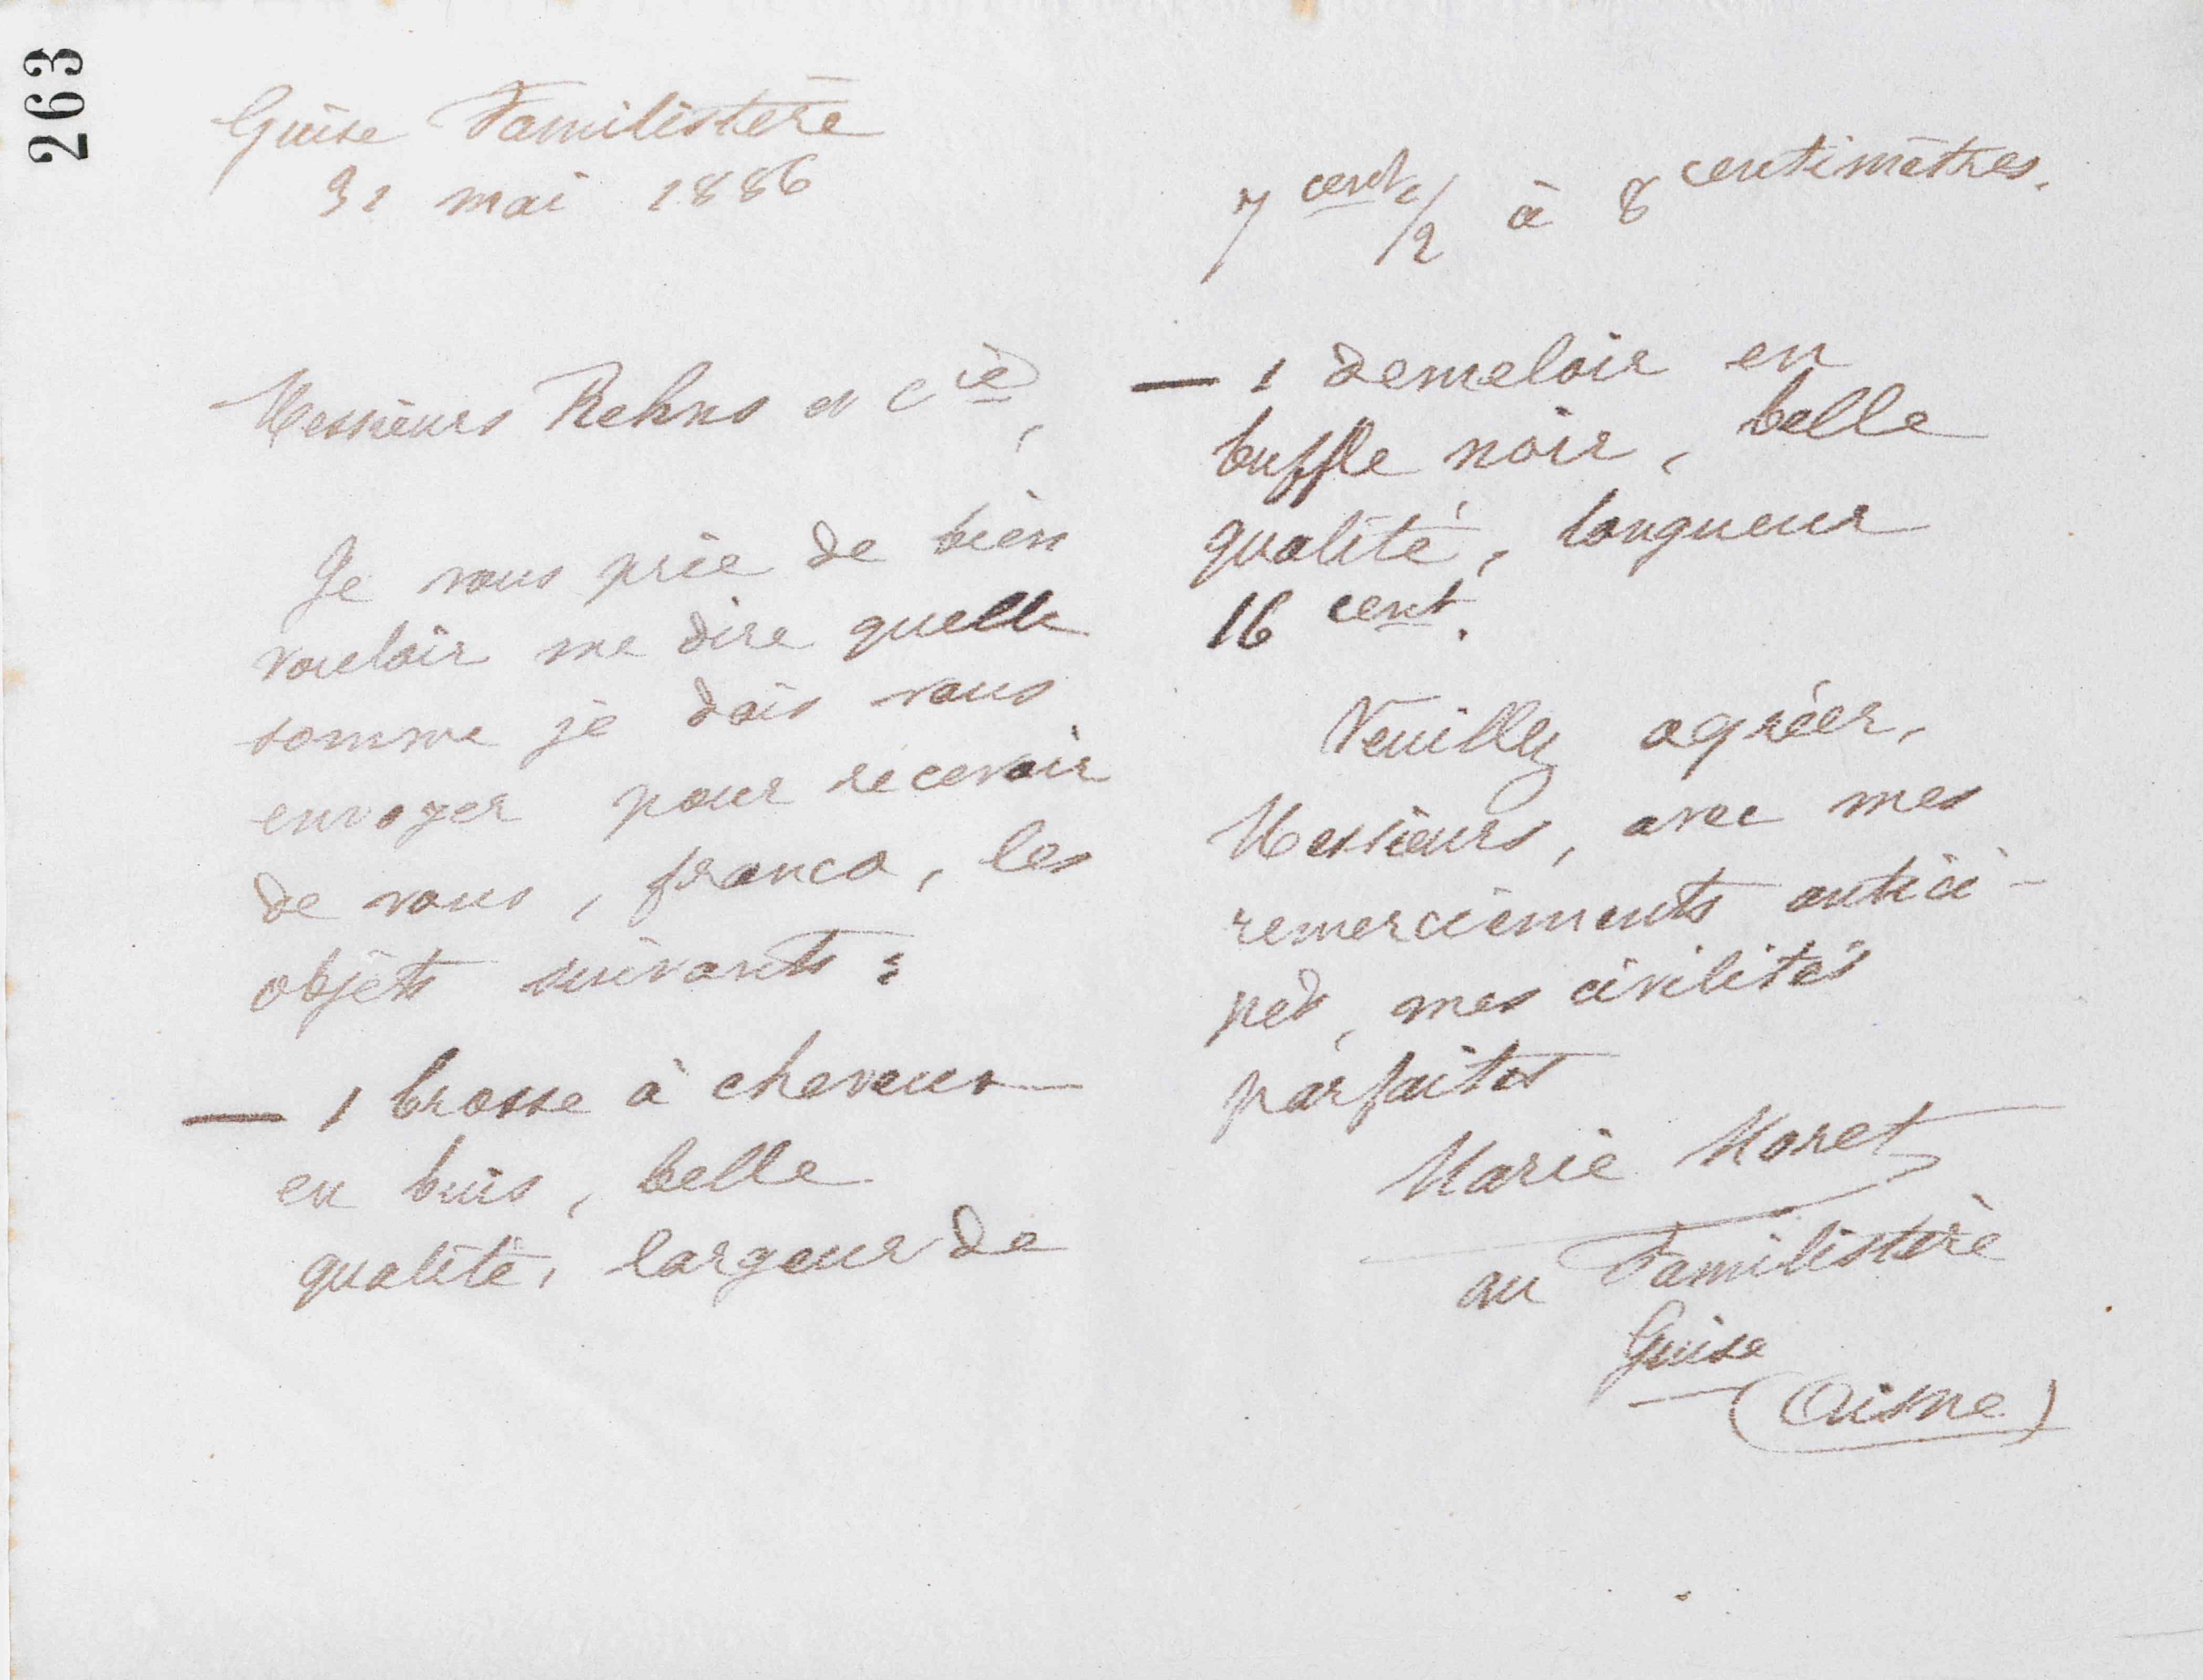 263
Guise Familistère
31 mai 1886
Messieurs Rehns et Cie,
Je vous prie de bien
vouloir me dire quelle
somme je dois vous
envoyer pour recevoir
de vous, franco, les
objets suivants :
— 1 brosse à cheveux
en buis, belle
qualité, largeur de
7 cent. 1/2 à 8 centimètres.
— 1 demeloir en
buffle noir, belle
qualité, longueur
16 cent.
Veuillez agréer,
Messieurs, avec mes
remerciements antici-
pés, mes civilités
parfaites
Marie Moret
au Familistère
Guise
(Aisne)